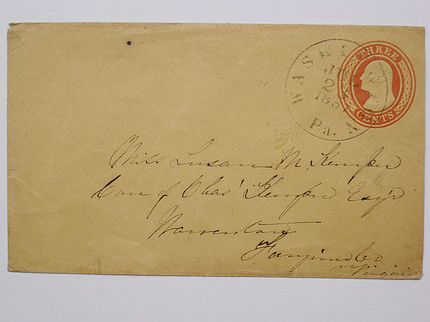 THREE
CENTS
WASH
2
185
Pa.
Miss Susan M. Kemper
Care of Chas Kemper Esqr
Warrenton
Fauquier Co
Virginia